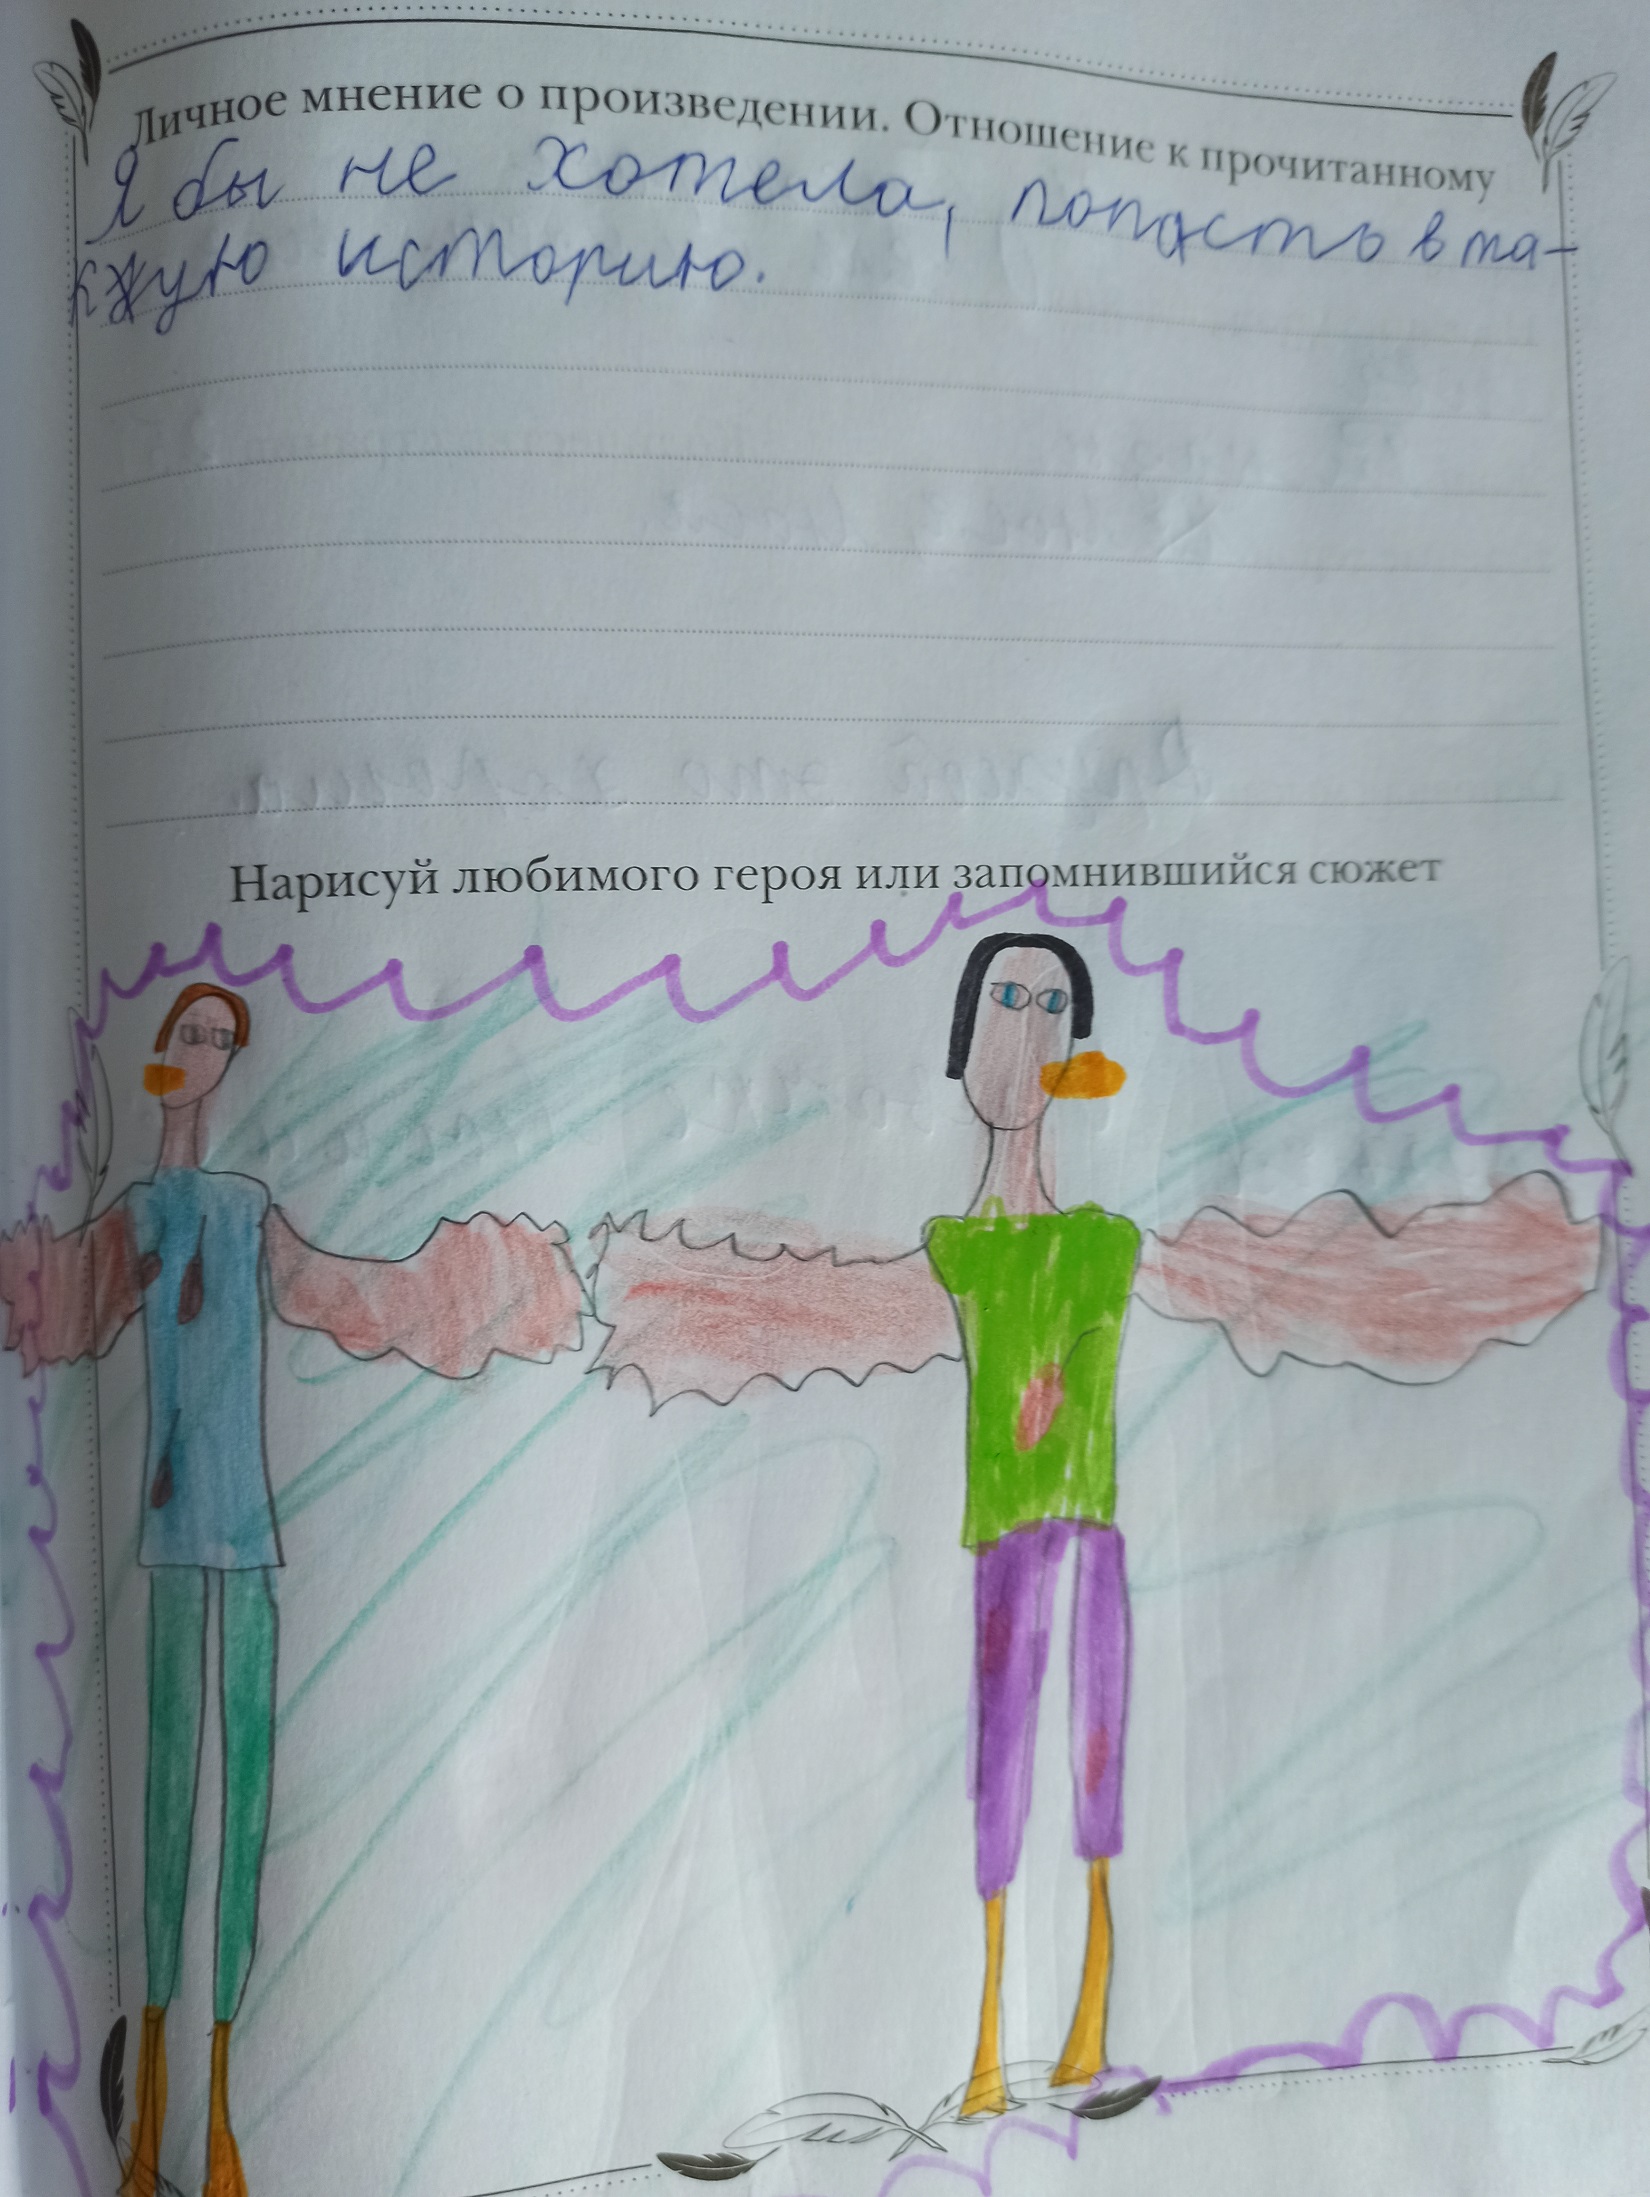 Личное мнение о произведении. Отношение к прочитанному
Я бы не хотела, попасть в та-
кжую историю.
Нарисуй любимого героя или запомнившийся сюжет